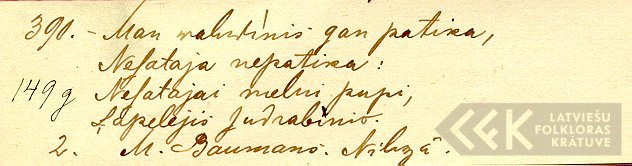 390. - Man vahrdinis gan patika,
Nesataja nepatika:
149 g Nesatajai melni pupi,
Lapelejis sudrabinis.
2. M. Baumans. Nihzā.
LATVIEŠU
FOLKLORAS
KRĀTUVE